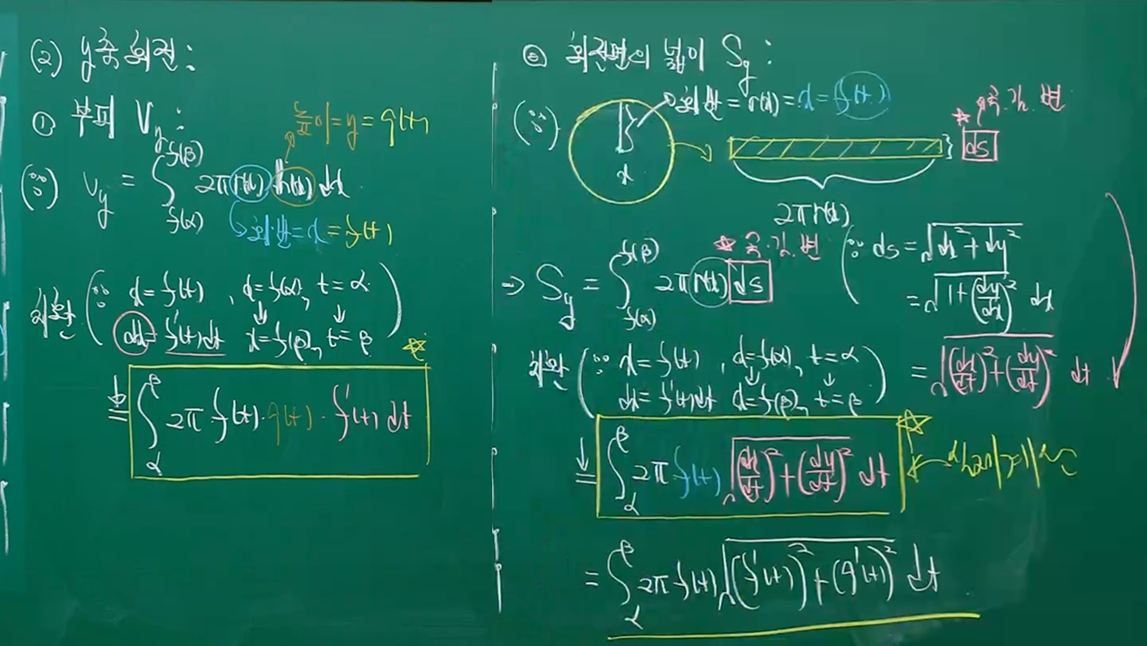 (2) y축 회전:
① 부피 V_y:
높이 = y = g(t)
(∵) V_y = ∫_{f(α)}^{f(β)} 2π r(x) h(x) dx
회·반 = x = f(t)
치환 (∵ x = f(t), x = f(α), t = α
dx = f'(t)dt x = f(β), t = β)
= ∫_α^β 2π f(t)·g(t)·f'(t) dt
② 회전면의 넓이 S_y:
(∵) 회·반 = r(x) = x = f(t)
곡·길·변
ds
x
2πr(x)
⇒ S_y = ∫_{f(α)}^{f(β)} 2π r(x) ds
곡·길·변
(∵ ds = √(dx² + dy²)
= √(1 + (dy/dx)²) dx
= √((dx/dt)² + (dy/dt)²) dt
치환 (∵ x = f(t), x = f(α), t = α
dx = f'(t)dt x = f(β), t = β)
= ∫_α^β 2π f(t) √((dx/dt)² + (dy/dt)²) dt
= ∫_α^β 2π f(t) √((f'(t))² + (g'(t))²) dt